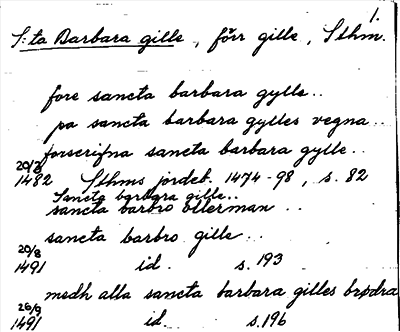 1.
S:ta Barbara gille, förr gille, Sthm.
fore sancta barbara gylle..
pa sancta barbara gylles vegna..
forscrifna sancta barbara gylle..
20/7
1482 Sthms jordeb. 1474-98, s. 82
Sancta barbara gille..
sancta barbro ollerman ..
sancta barbro gille..
20/8
1491 id. s. 193
medh alla sancta barbara gilles brødra
26/9
1491 id. s. 196